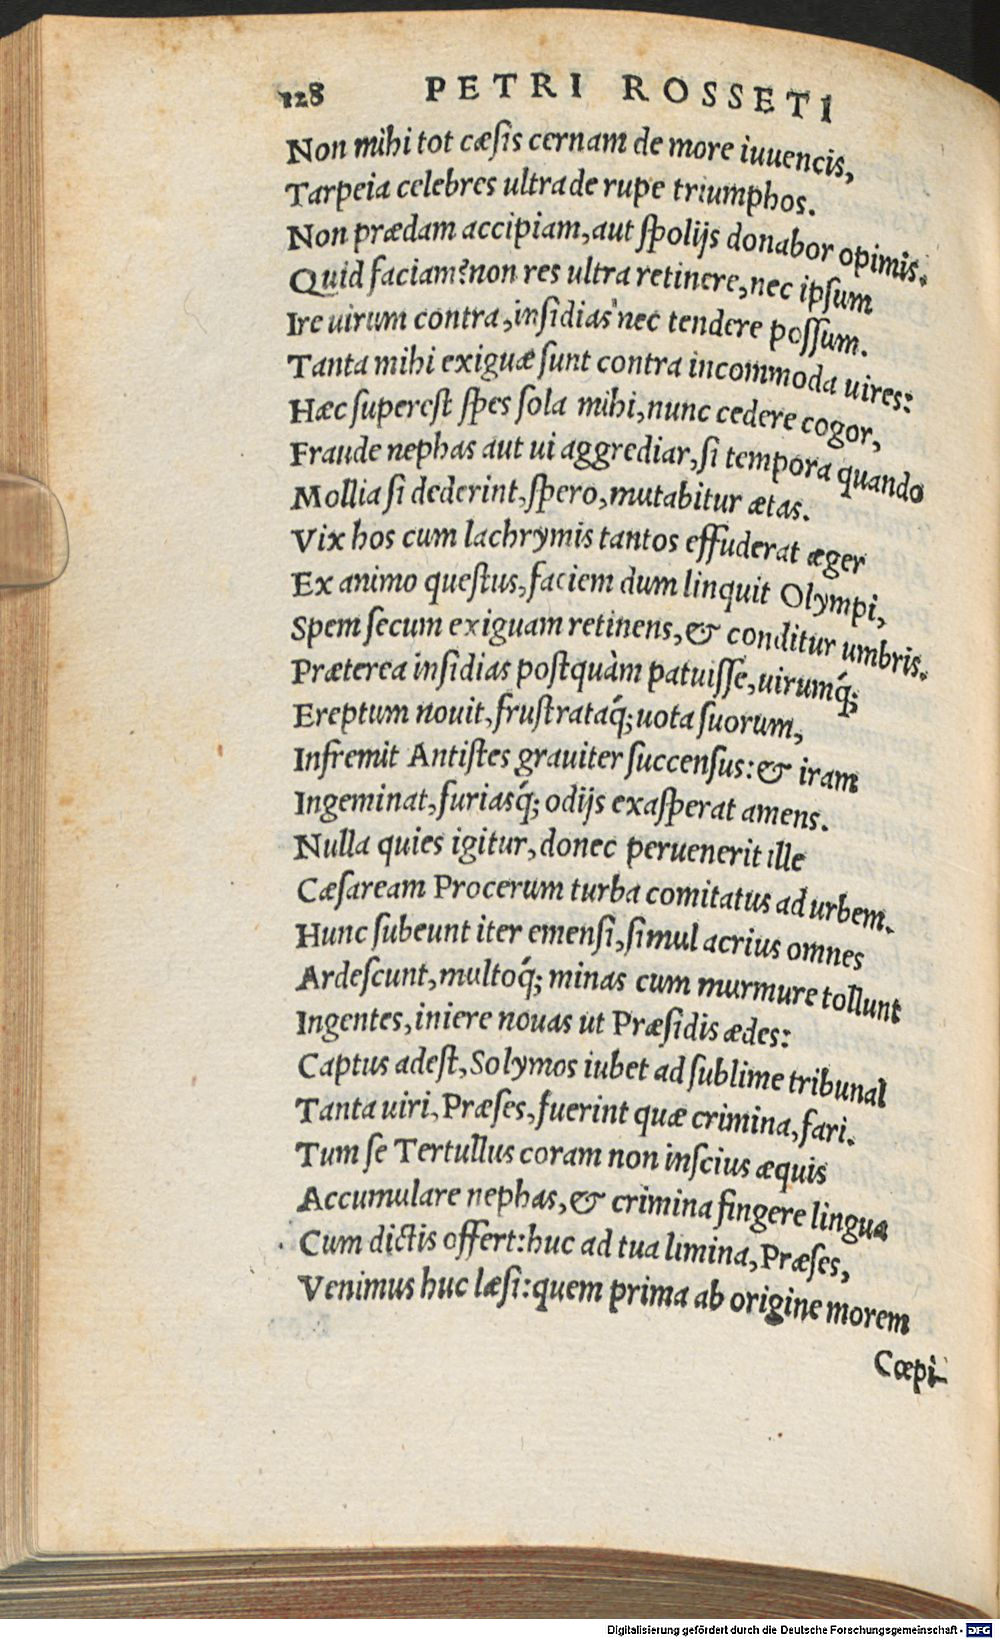 128 PETRI ROSSETI
Non mihi tot cæſis cernam de more iuuencis,
Tarpeia celebres ultra de rupe triumphos.
Non prædam accipiam, aut ſpolijs donabor opimis.
Quid faciam? non res ultra retinere, nec ipſum
Ire uirum contra, inſidias nec tendere poſſum.
Tanta mihi exiguæ ſunt contra incommoda uires:
Hæc ſupereſt ſpes ſola mihi, nunc cedere cogor,
Fraude nephas aut ui aggrediar, ſi tempora quando
Mollia ſi dederint, ſpero, mutabitur ætas.
Vix hos cum lachrymis tantos effuderat æger
Ex animo queſtus, faciem dum linquit Olympi,
Spem ſecum exiguam retinens, & conditur umbris.
Præterea inſidias poſtquàm patuiſſe, uirumq́;
Ereptum nouit, fruſtrataq́; uota ſuorum,
Infremit Antiſtes grauiter ſuccenſus: & iram
Ingeminat, furiasq́; odijs exaſperat amens.
Nulla quies igitur, donec peruenerit ille
Cæſaream Procerum turba comitatus ad urbem.
Hunc ſubeunt iter emenſi, ſimul acrius omnes
Ardeſcunt, multoq́; minas cum murmure tollunt
Ingentes, iniere nouas ut Præſidis ædes:
Captus adeſt, Solymos iubet ad ſublime tribunal
Tanta uiri, Præſes, fuerint quæ crimina, fari.
Tum ſe Tertullus coram non inſcius æquis
Accumulare nephas, & crimina fingere lingua
Cum dictis offert: huc ad tua limina, Præſes,
Venimus huc læſi: quem prima ab origine morem
Cœpi-
Digitalisierung gefördert durch die Deutsche Forschungsgemeinschaft - DFG